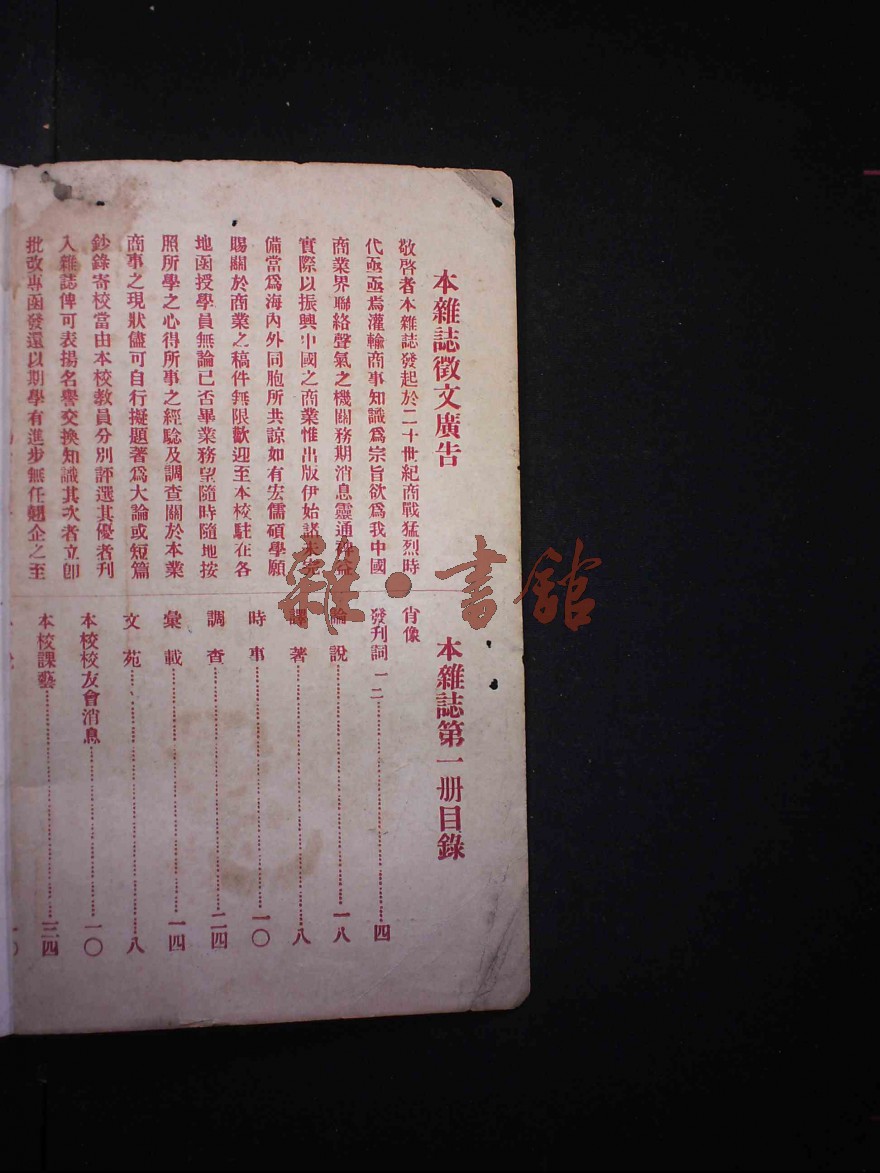 本雜誌徵文廣告
敬啓者本雜誌發起於二十世紀商戰猛烈時
代亟亟焉灌輸商事知識爲宗旨欲爲我中國
商業界聯絡聲氣之機關務期消息靈通 益
實際以振興中國之商業惟出版伊始諸未完
備當爲海內外同胞所共諒如有宏儒碩學願
賜關於商業之稿件無限歡迎至本校駐在各
地函授學員無論已否畢業務望隨時隨地按
照所學之心得所事之經驗及調查關於本業
商事之現狀儘可自行擬題著爲大論或短篇
鈔錄寄校當由本校教員分別評選其優者刊
入雜誌俾可表揚名譽交換知識其次者立卽
批改專函發還以期學有進步無任翹企之至
本雜誌第一册目錄
肖像
發刊詞 一 二 四
論說 一八
譯著 八
時事 一〇
調查 二四
彙載 一四
文苑 八
本校校友會消息 一〇
本校課藝 三四
雜·書館